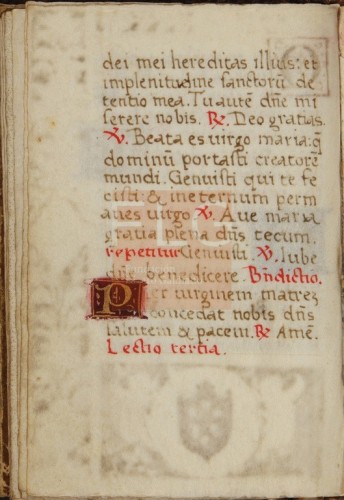 dei mei hereditas illius: et
in plenitudine sanctorū de
tentio mea. Tu autē dn̄e mi
serere nobis. ℟. Deo gratias.
℣. Beata es uirgo maria: q̄
dominū portasti creatorē
mundi. Genuisti qui te fe
cisti: & in eternum perm
anes uirgo ℣. Aue maria
gratia plena dn̄s tecum.
repetitur Genuisti. ℣. Iube
dn̄e benedicere. Bn̄dictio.
Per uirginem matrez
concedat nobis dn̄s
salutem & pacem. ℟. Amē.
Lectio tertia.